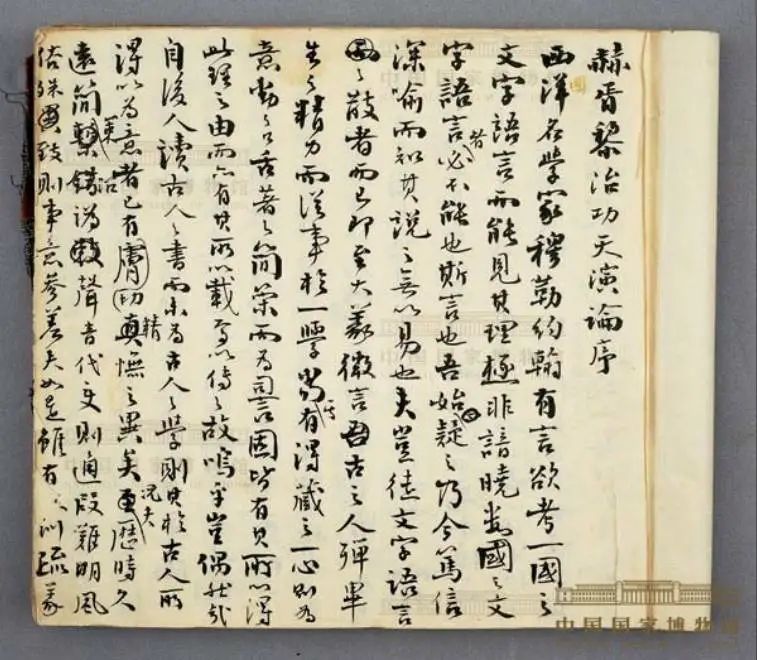 赫胥黎治功天演論序
西洋名學家穆勒約翰有言欲考一國之
國
文字語言而能見其理極非諳曉數國之文
字語言者必不能也斯言也吾始疑之乃今篤信
深喻而知其說之無以易也夫豈徒文字語言
之散者而已即至大義微言古之人殫畢
生之精力而從事於一學當其有得藏之一心則為
意動之口舌著之簡策而為詞固皆有其所以得
此理之由而亦有其所以載焉以傳之故嗚乎豈偶然哉
自後人讀古人之書而未為古人之學則其於古人所
得以為意者已有膚切真精憮之異矣更況夫歷時久
遠簡策沿譌聲音代变則通叚難明風
俗殊異致則事意參差夫如是雖有訓疏義
中国国家博物馆